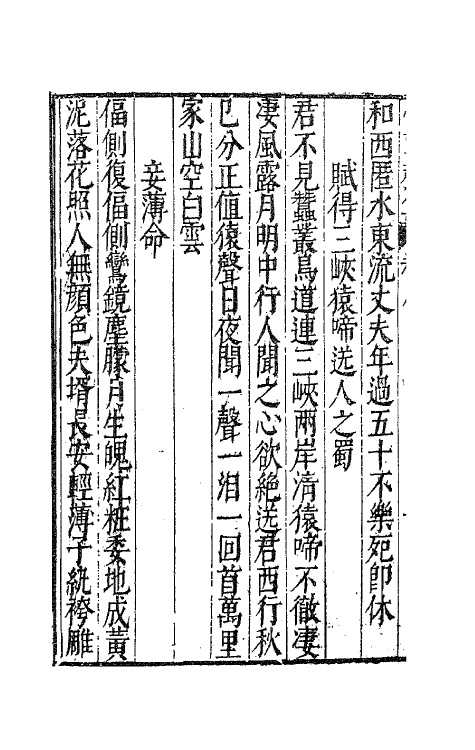 和西匿水東流丈夫年過五十不樂死卽休
賦得三峽猿啼送人之蜀
君不見蠶叢鳥道連三峽兩岸清猿啼不徹凄
凄風露月明中行人聞之心欲絶送君西行秋
已分正值猿聲日夜聞一聲一泪一回首萬里
家山空白雲
妾薄命
偪側復偪側鸞鏡塵朦月生魄紅粧委地成黃
泥落花照人無顔色夫壻長安輕薄子紈袴雕